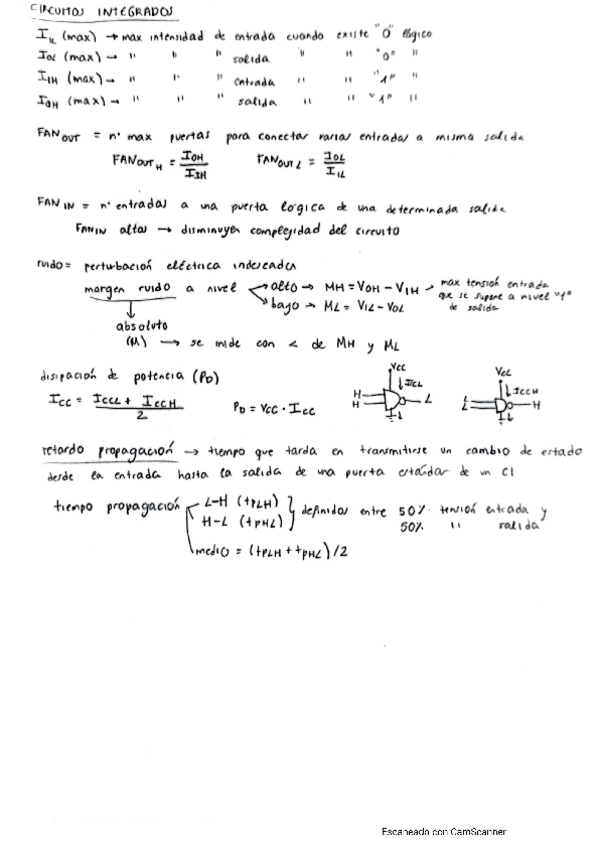 CIRCUITOS INTEGRADOS
I_IL (max) → max intensidad de entrada cuando existe "0" lógico
I_OL (max) → " " " salida " " "0" "
I_IH (max) → " " " entrada " " "1" "
I_OH (max) → " " " salida " " "1" "
FAN_OUT = nº max puertas para conectar varias entradas a misma salida
FAN_OUT_H = I_OH / I_IH FAN_OUT_L = I_OL / I_IL
FAN_IN = nº entradas a una puerta lógica de una determinada salida
FAN_IN altos → disminuyen complejidad del circuito
ruido = perturbación eléctrica indeseada
margen ruido a nivel alto → M_H = V_OH - V_IH → max tensión entrada
que se supone a nivel "1"
de salida
bajo → M_L = V_IL - V_OL
absoluto
(M) → se mide con < de M_H y M_L
disipación de potencia (P_D)
I_CC = (I_CCL + I_CCH) / 2 P_D = V_CC · I_CC
Vcc I_CCL H H L
Vcc I_CCH L H
retardo propagación → tiempo que tarda en transmitirse un cambio de estado
desde la entrada hasta la salida de una puerta estándar de un CI
tiempo propagación L-H (t_PLH) definidos entre 50% tensión entrada y
H-L (t_PHL) 50% " salida
medio = (t_PLH + t_PHL)/2
Escaneado con CamScanner